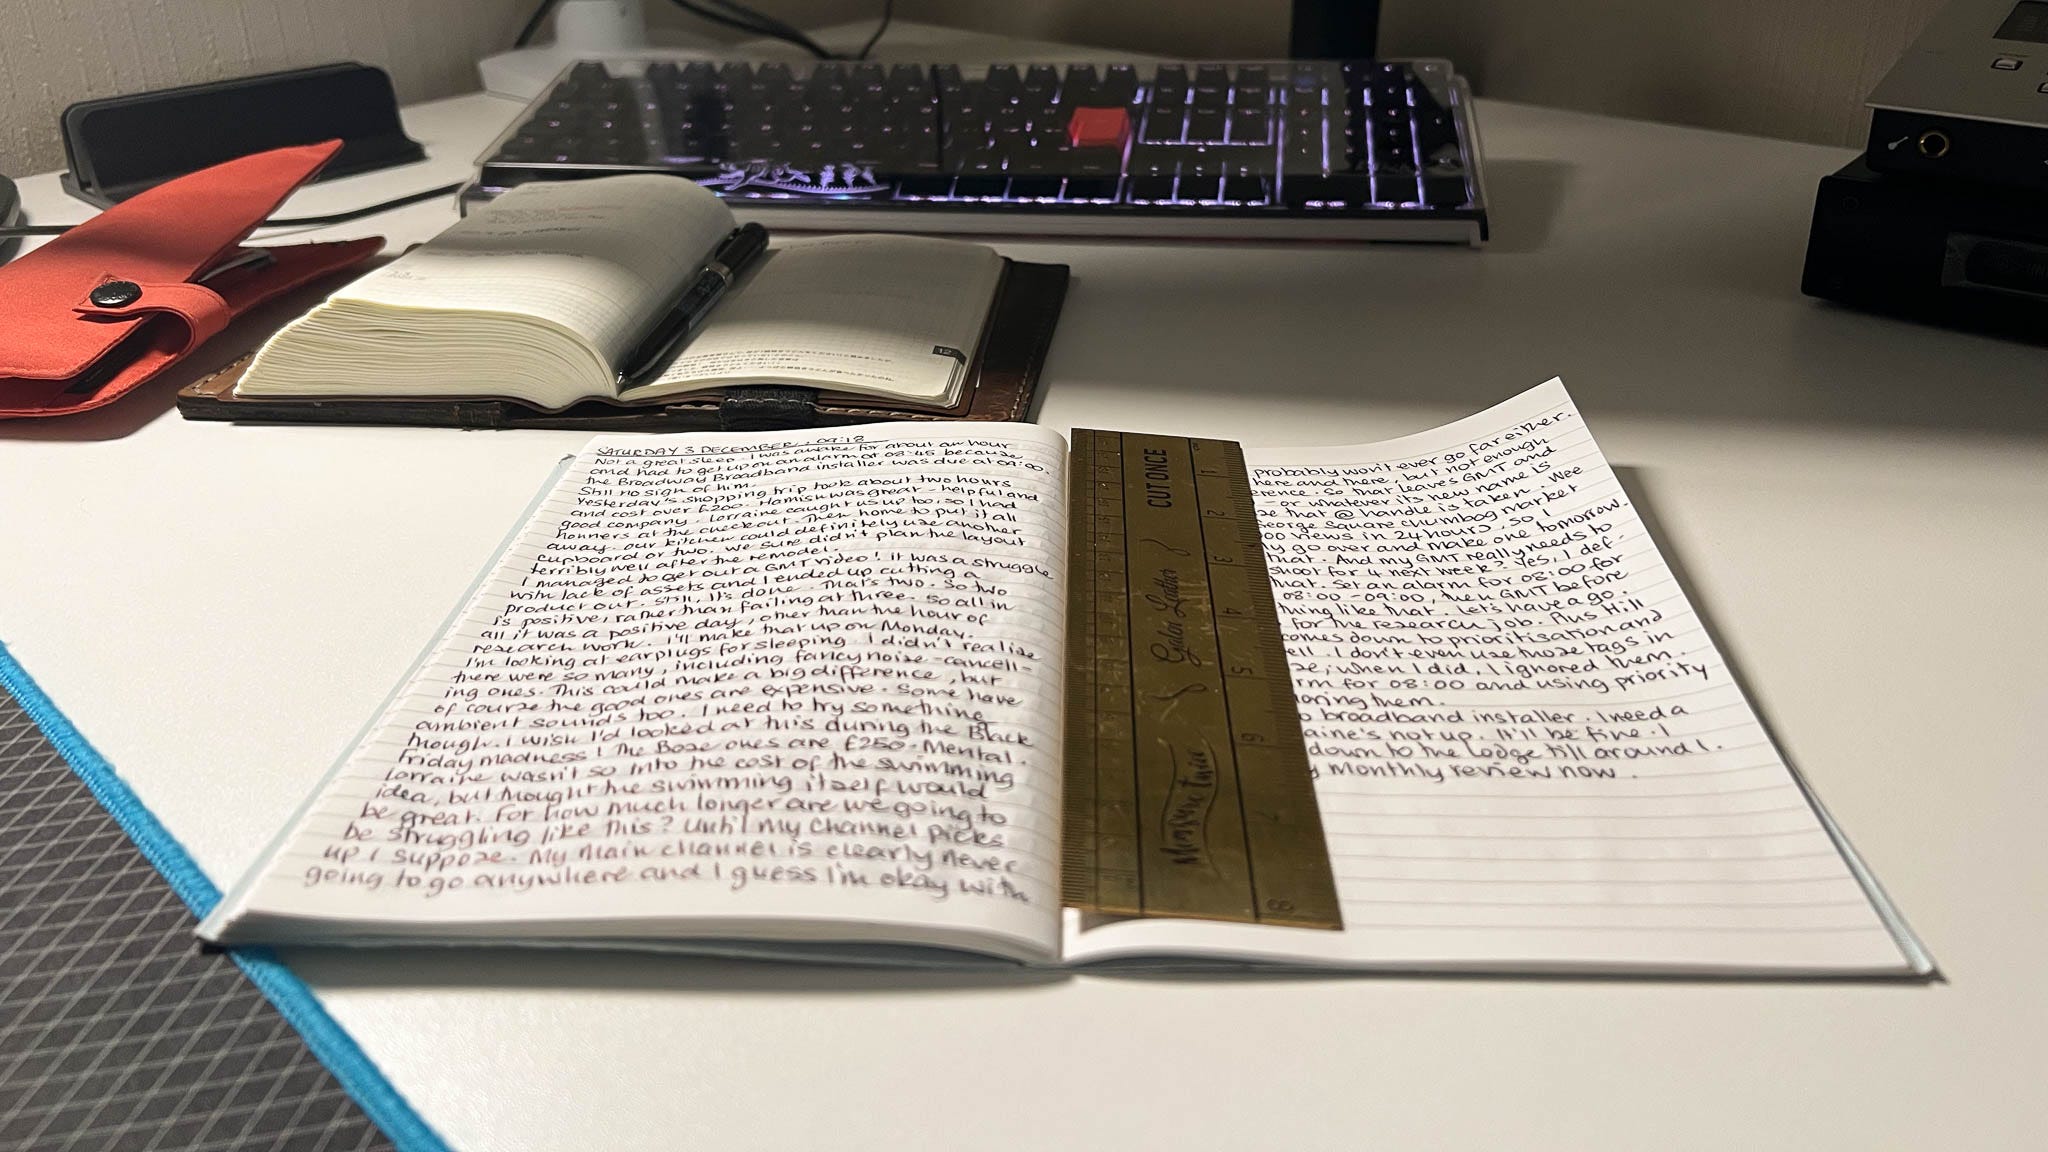 SATURDAY 3 DECEMBER, 09:18
Not a great sleep. I was awake for about an hour
and had to get up on an alarm at 08:45 because
the Broadway Broadband installer was due at 09:00.
Still no sign of him.
Yesterday's shopping trip took about two hours
and cost over £200. Hamish was great - helpful and
good company. Lorraine caught us up too, so I had
honners at the checkout. Then home to put it all
away. Our kitchen could definitely use another
cupboard or two. We sure didn't plan the layout
terribly well after the remodel.
I managed to get out a GMT video! It was a struggle
with lack of assets and I ended up cutting a
product out. Still, it's done. That's two. So two
is positive, rather than failing at three. So all in
all it was a positive day, other than the hour of
research work. I'll make that up on Monday.
I'm looking at earplugs for sleeping. I didn't realise
there were so many, including fancy noise-cancell-
ing ones. This could make a big difference, but
of course the good ones are expensive. Some have
ambient sounds too. I need to try something
though. I wish I'd looked at this during the Black
Friday madness! The Bose ones are £250. Mental.
Lorraine wasn't so into the cost of the swimming
idea, but thought the swimming itself would
be great. For how much longer are we going to
be struggling like this? Until my channel picks
up I suppose. My main channel is clearly never
going to go anywhere and I guess I'm okay with
probably won't ever go far either.
here and there, but not enough
So that leaves GMT and
or whatever its new name is
that @ handle is taken. Wee
George Square chumbog market
views in 24 hours, so I
go over and make one tomorrow.
that. And my GMT really needs to
shoot for 4 next week? Yes, I def-
that. Set an alarm for 08:00 for
08:00-09:00, then GMT before
thing like that. Let's have a go.
for the research job. Plus Hill
comes down to prioritisation and
I don't even use those tags in
when I did, I ignored them.
for 08:00 and using priority
them.
broadband installer. I need a
not up. It'll be fine. I
down to the lodge till around 1.
Monthly review now.
CUT ONCE
Galen Leather
Measure Twice
1
2
3
4
5
6
7
8
12